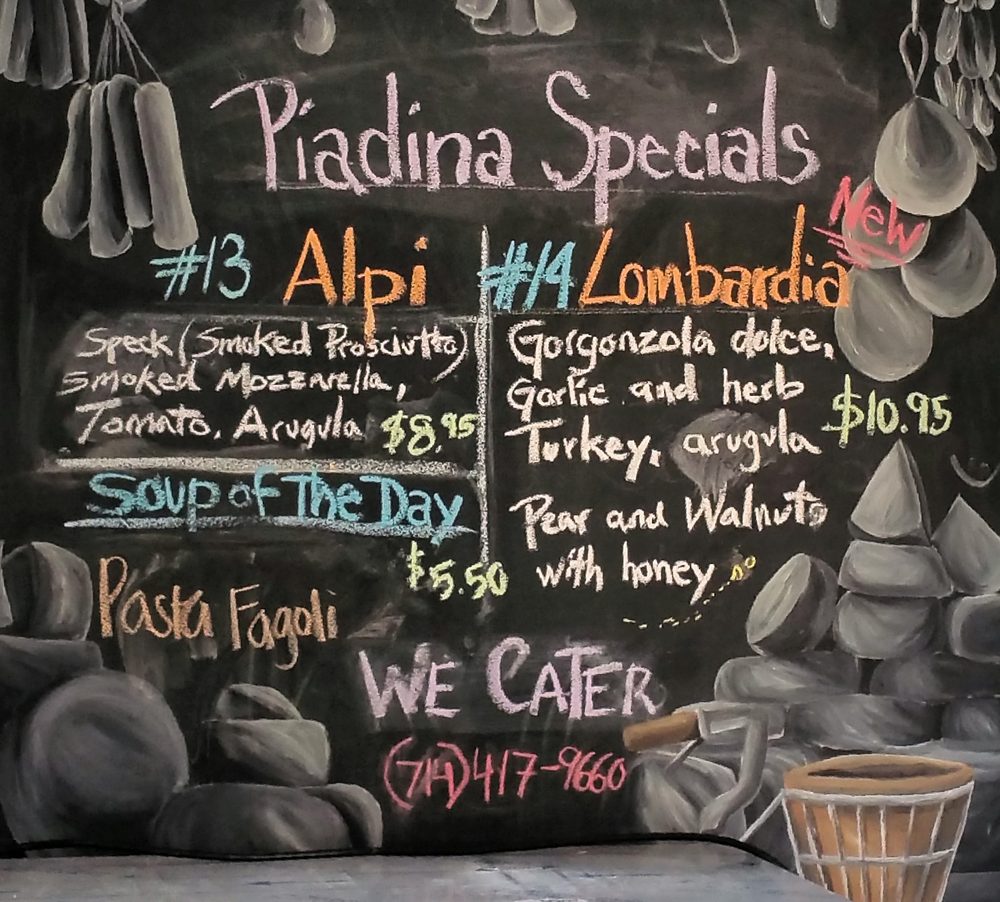 Piadina Specials
#13 Alpi
Speck (Smoked Prosciutto)
Smoked Mozzarella,
Tomato, Arugula $8.95
Soup of The Day
$5.50
Pasta Fagoli
New
#14 Lombardia
Gorgonzola dolce,
Garlic and herb
Turkey, arugula $10.95
Pear and Walnuts
with honey
WE CATER
(714)417-9660